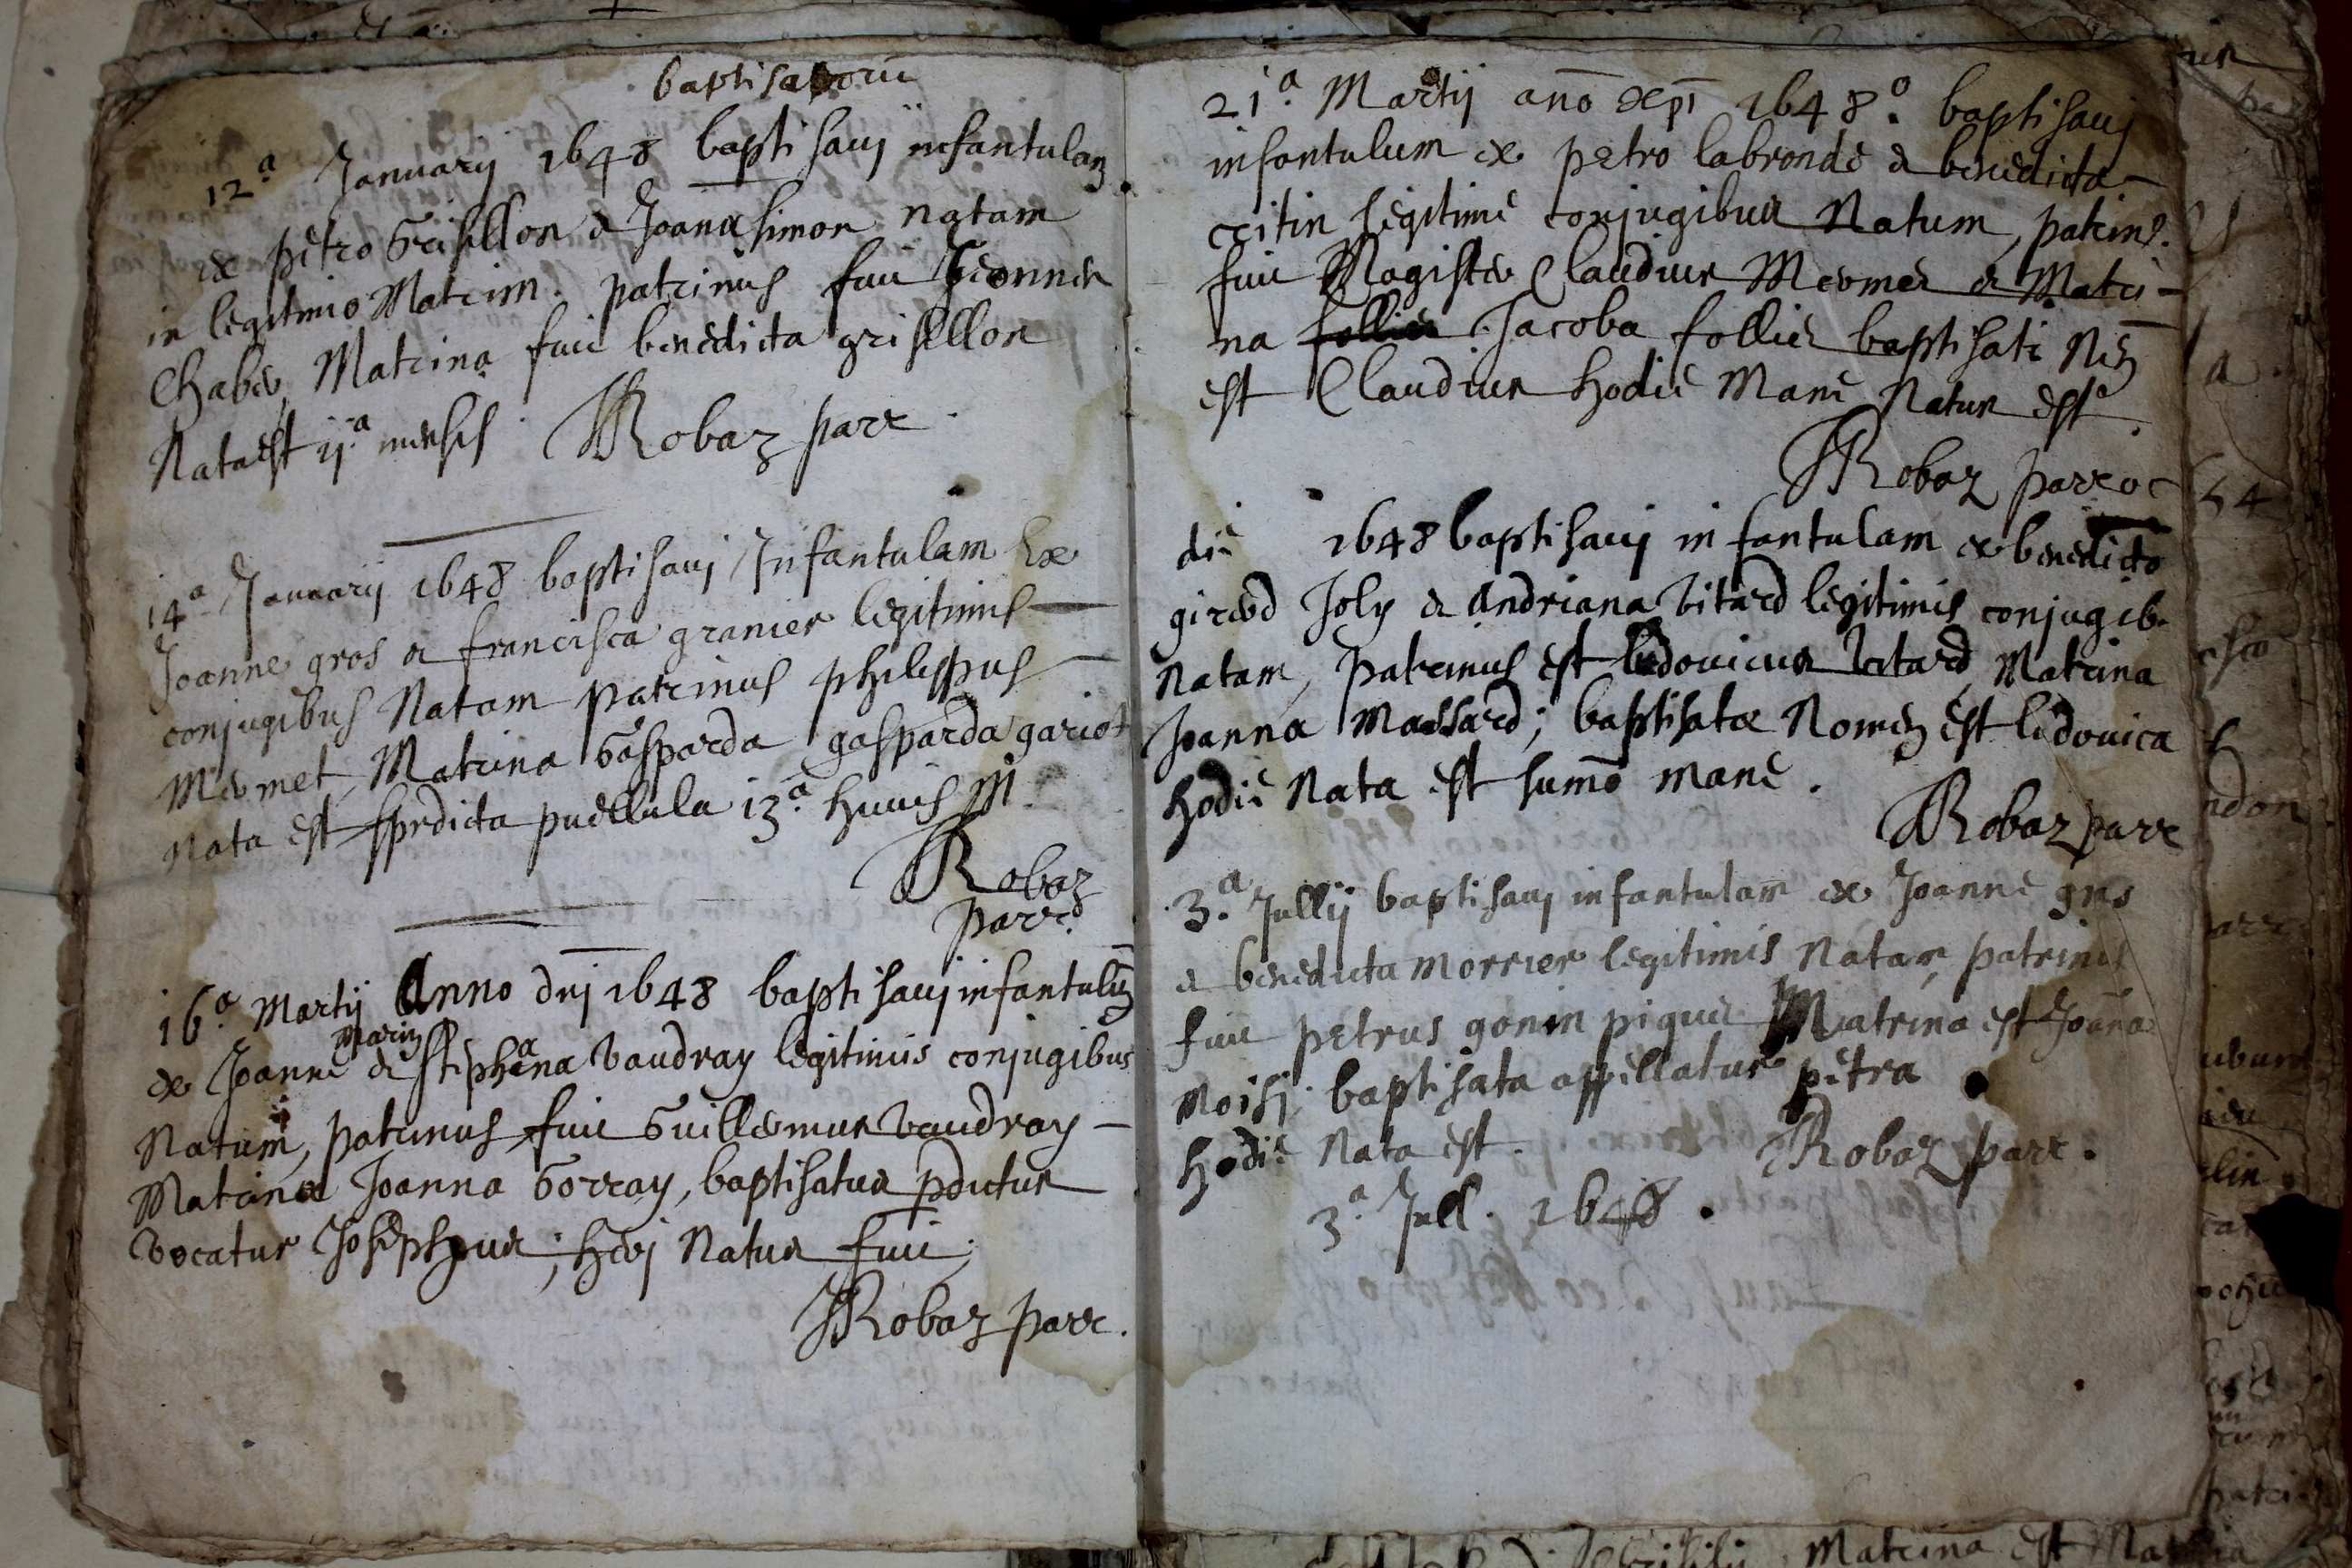 baptisatorū
12.a Januarij 1648 baptisavj infantulam
ex petro Grisellon & Joana simon natam
in legitimo Matrim. patrinus fuit
Chaber, Matrina fuit benedicta grisellon
Nata est ij.a mensis. Robaz parr.
14.a Januarij 1648 baptisavj Infantulam Ex
Joanne gros & francisca granier legitimis
conjugibus Natam patrinus philippus
Mermet, Matrina Gasparda gasparda gariot
Nata est spredicta puellula 13.a huius M.
Robaz
parr.
16.a Martij Anno dnj 1648 baptisavj infantulū
marin
ex Joanne & stephana vaudray legitimis conjugibus
Natum, patrinus fuit Guillermus vaudray
Matrina Joanna Gorray, baptisatus pdictus
vocatur Josephus; herj Natus fuit;
Robaz parr.
21.a Martij año xpī 1648.o baptisavj
infantulum ex petro labronde & benedicta
critin legitime conjugibus Natum, patrin9.
fuit Magister Claudius Mermet & Matri-
na follier Jacoba follier baptisati
est Claudius hodie Mane Natus est.
Robaz parroc
die 1648 baptisavj infantulam ex benedicto
girod Joly & Andriana vitard legitimis conjugib.
Natam, patrinus est ludovicus vitard Matrina
Joanna Massard; baptisatæ Nomen est ludovica
hodie Nata est sumō mane.
Robaz parr
3.a Jullij baptisavj infantulam ex Joanne gros
& benedicta morrier legitimis Natam, patrinus
fuit petrus gonin piquet Matrina est Joāna
Moisj. baptisata appellatur petra
hodie Nata est. Robaz parr.
3.a Jull. 1648.
Matrina est